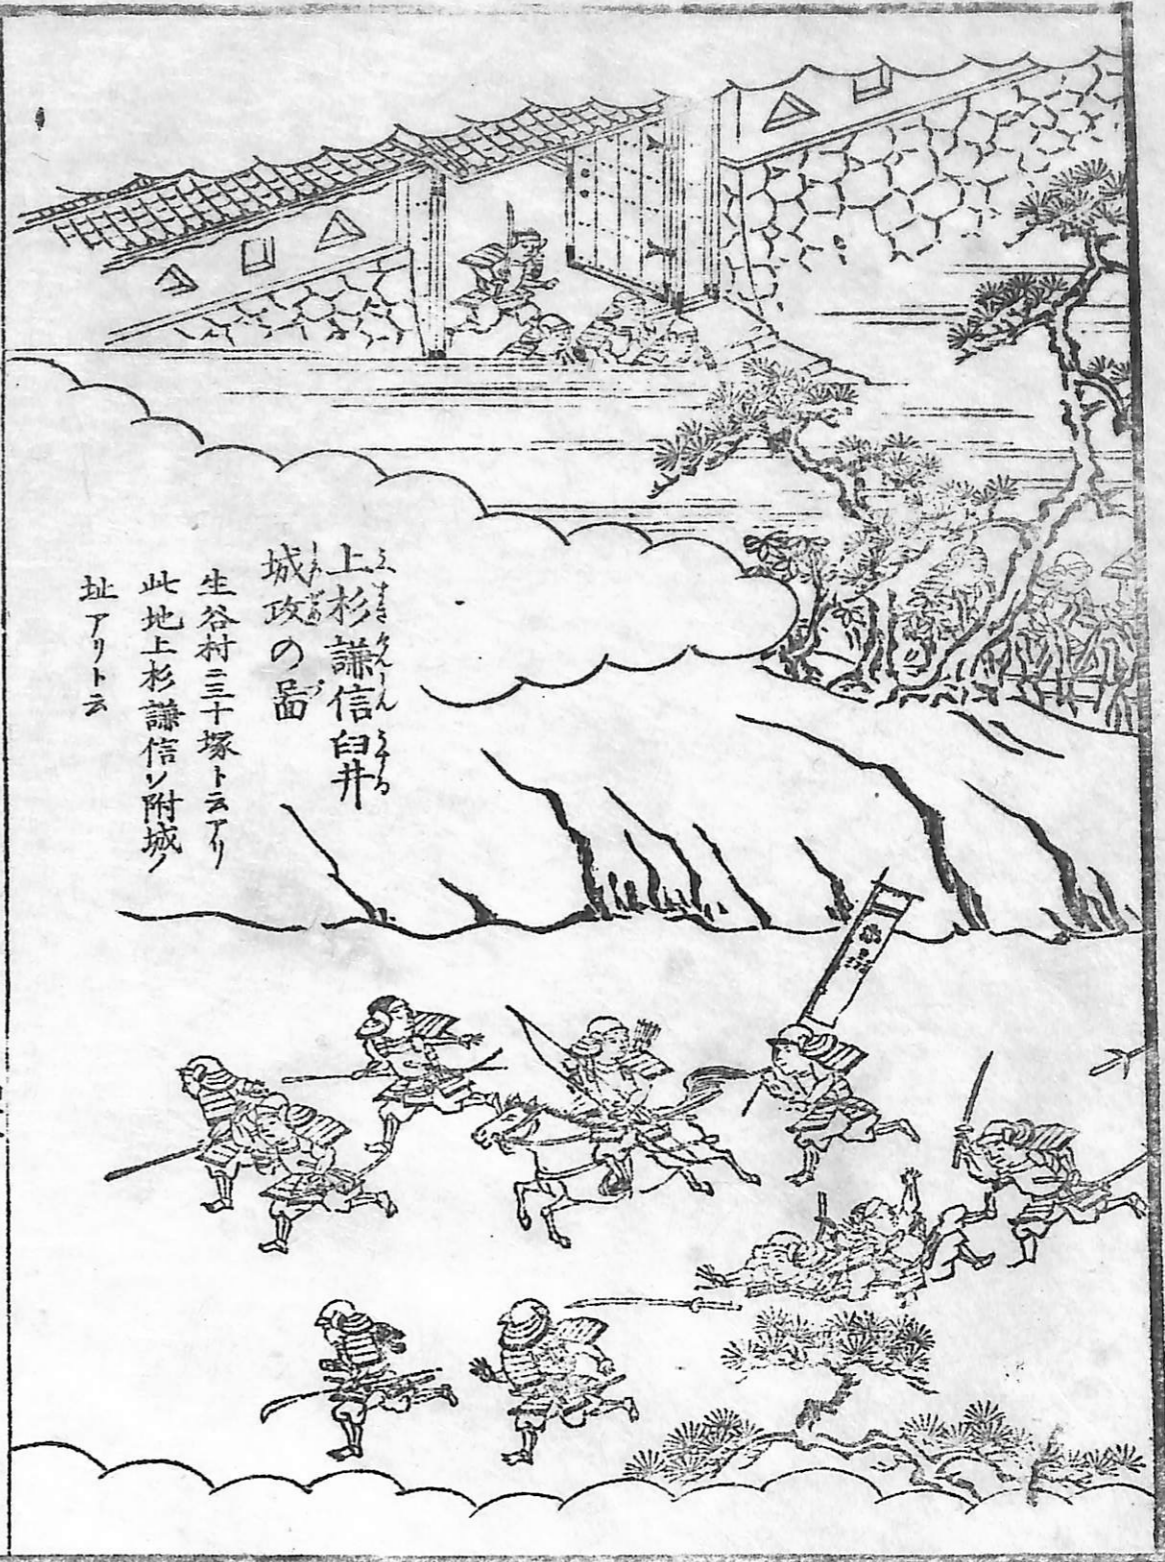 上杉謙信臼井
城攻の圖
生谷村ニ三十塚ト云アリ
此地上杉謙信ノ附城ノ
址アリト云